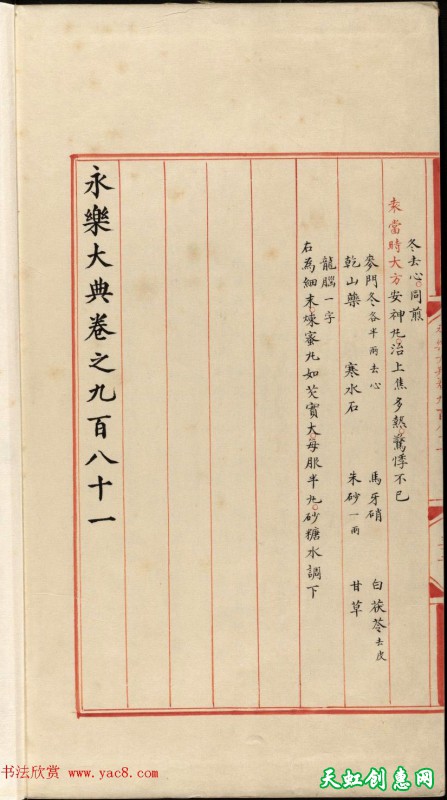 冬去心同煎
袁當時大方安神丸治上焦多熱驚悸不已
麥門冬各半兩去心 馬牙硝 白茯苓去皮
乾山藥 寒水石 朱砂一兩 甘草
龍腦一字
右為細末煉蜜丸如芡實大每服半丸砂糖水調下
永樂大典卷之九百八十一
书法欣赏 www.yac8.com
天虹创惠网